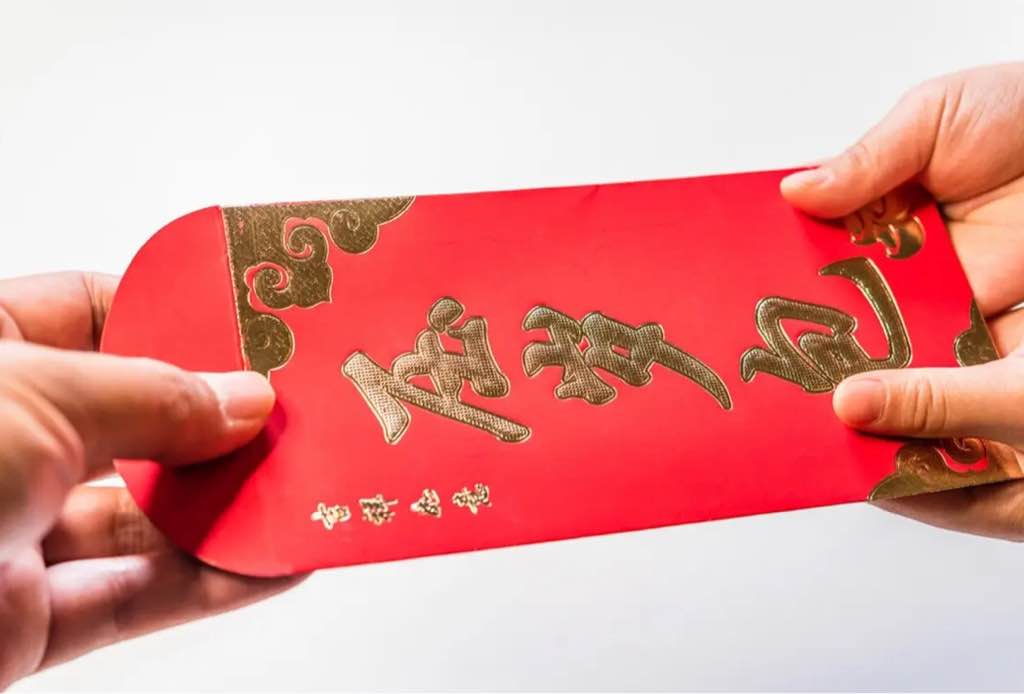 压岁包
吉祥如意